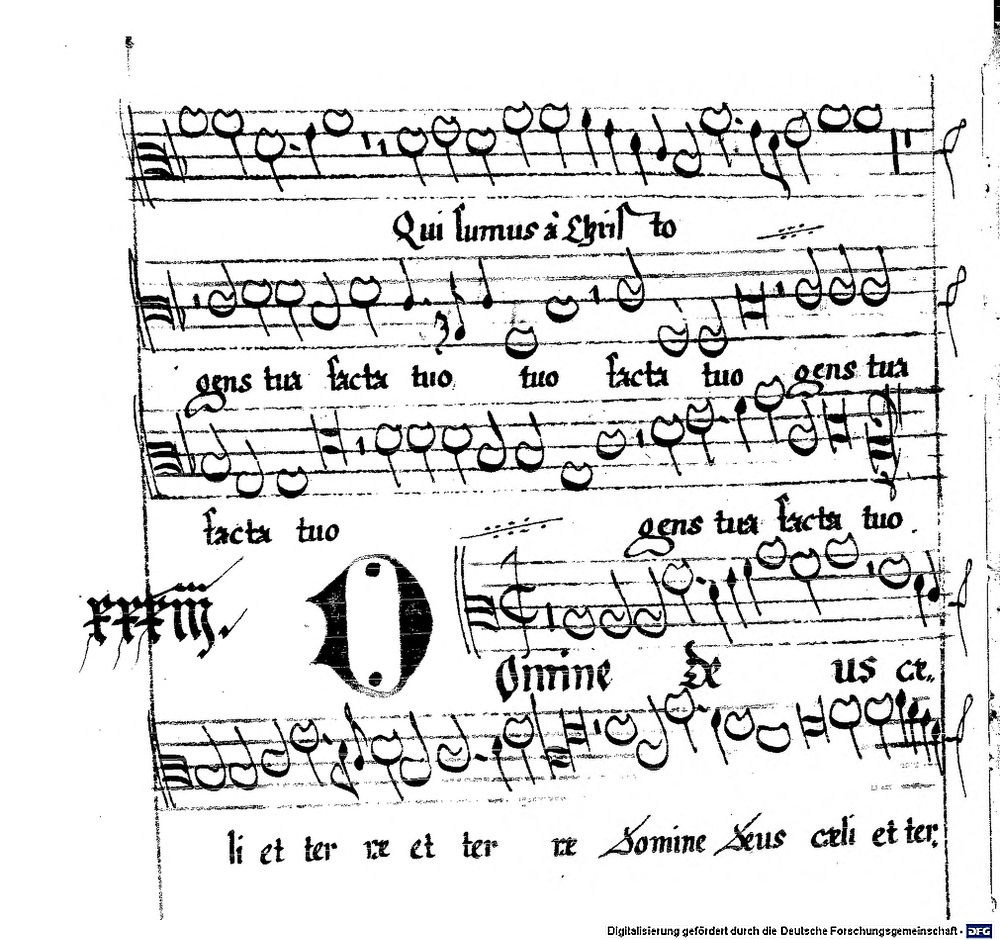 Qui sumus à Christo
gens tua facta tuo tuo facta tuo gens tua
facta tuo gens tua facta tuo.
xxxiij.
Domine De us cæ„
li et ter ræ et ter ræ Domine Deus cæli et ter„
Digitalisierung gefördert durch die Deutsche Forschungsgemeinschaft - DFG